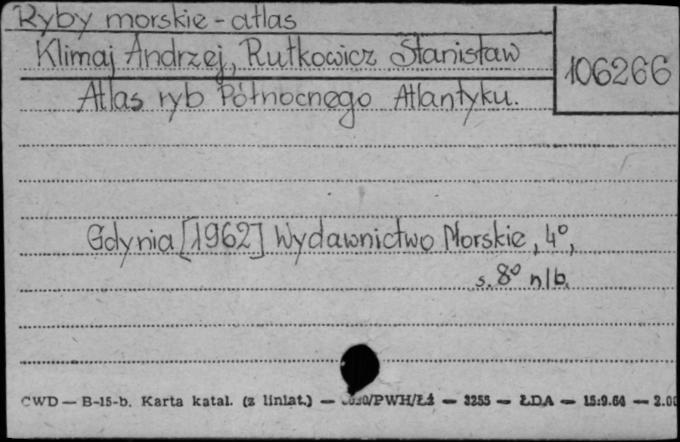 Ryby morskie - atlas
Klimaj Andrzej, Rutkowicz Stanisław
106266
Atlas ryb Północnego Atlantyku.
Gdynia [1962] Wydawnictwo Morskie, 4°,
s. 8° nlb.
CWD — B-15-b. Karta katal. (z liniat.) — /PWH/Łź — 3255 — ŁDA — 15.9.64 — 2.00